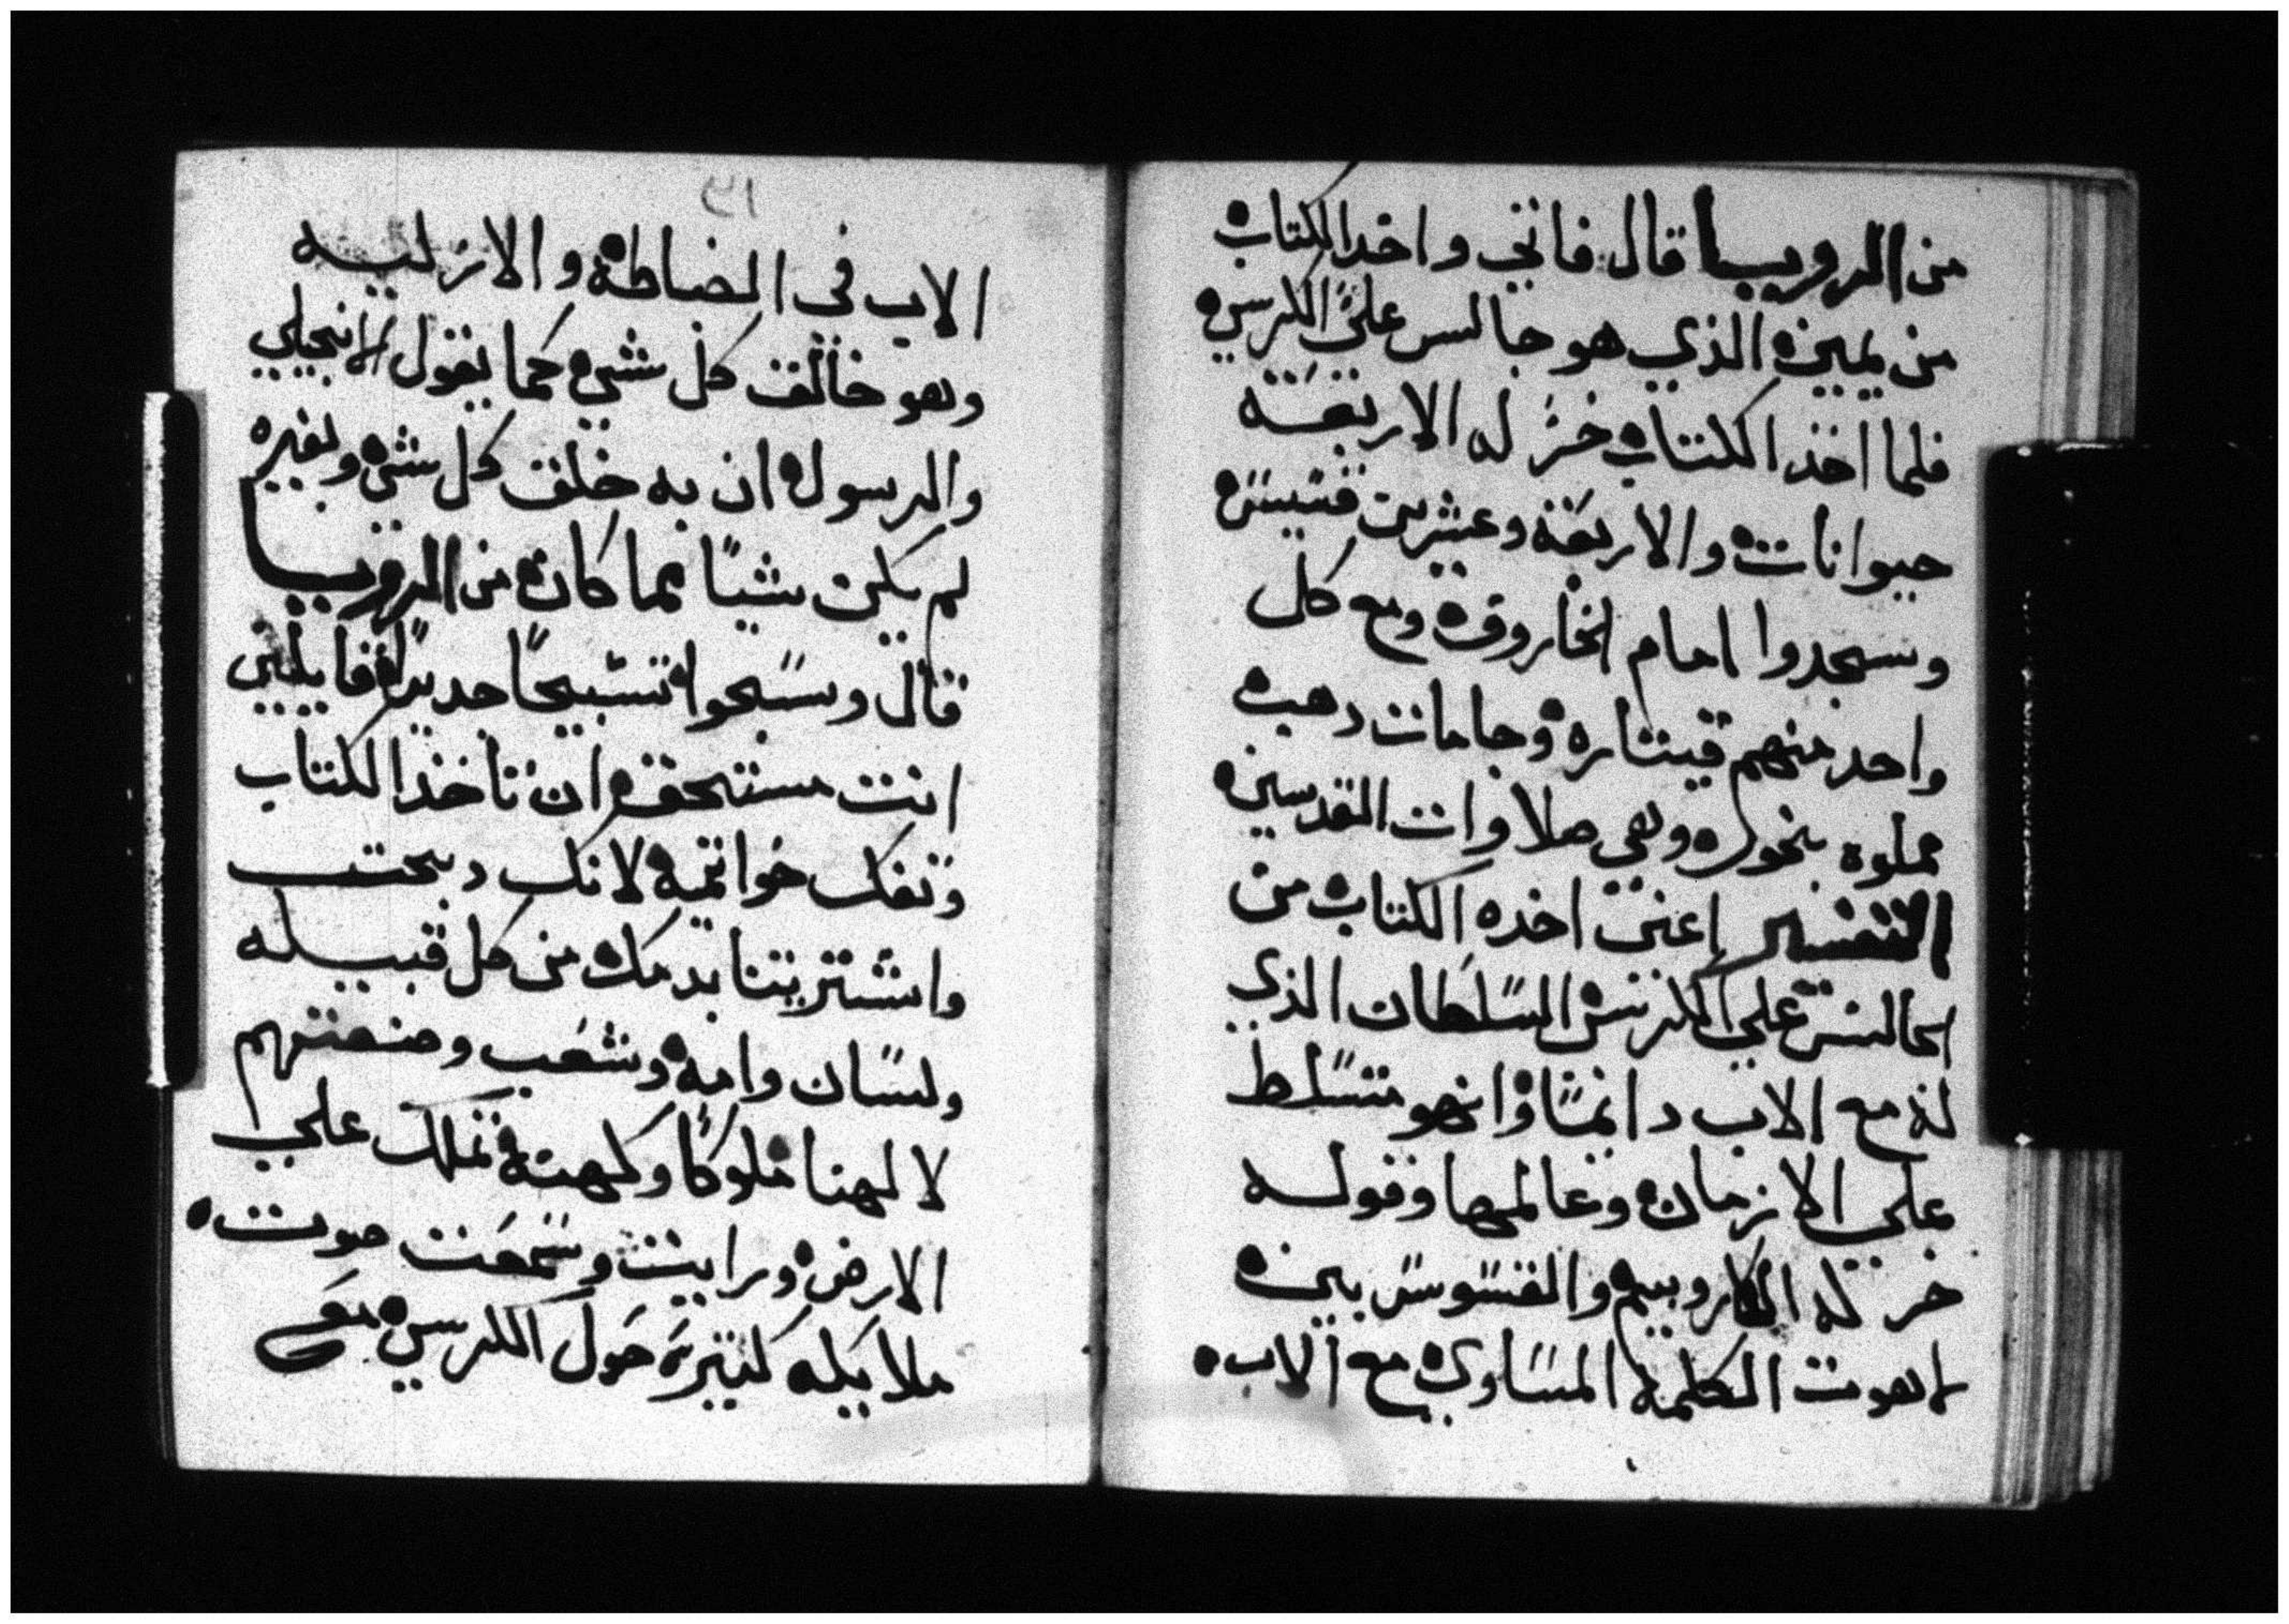 من الرويا قال فاتي واخدا لكتاب
من يمين الذي هو جالس على الكرسي
فلما اخذ الكتاب خرّ له الاربعة
حيوانات والاربعة وعشرين قسيس
وسجدوا امام الخاروف ومع كل
واحد منهم قيتاره وجامات دهب
مملوه بخور وهي صلاوات القدسين
التفسير اعني اخده الكتاب من
الجالس على الكرسي السلطان الذي
له مع الاب دائمًا وانهو متسلط
علي الازمان وعالمها وقوله
خر له الكاروبيم والقسوس بين
لاهوت الكلمة المساوي مع الاب
٣١
الاب في الضابطة والازليه
وهو خالق كل شي كما يقول الانجيلي
والرسول ان به خلق كل شي وبغيره
لم يكن شيًا مما كان من الرويا
قال وسبحوا تسبيحًا جديدًا قايلين
انت مستحق ان تاخذ الكتاب
وتفك خواتمه لانك دبحت
واشتريتنا بدمك من كل قبيله
ولسان وامه وشعب وصنعتهم
لالهنا ملوكًا وكهنة تملك علي
الارض ورايت وسمعت صوت
ملايكه كتيره حول الكرسي مع